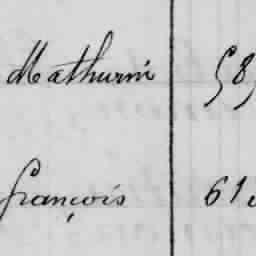 Mathurin 58
françois 61